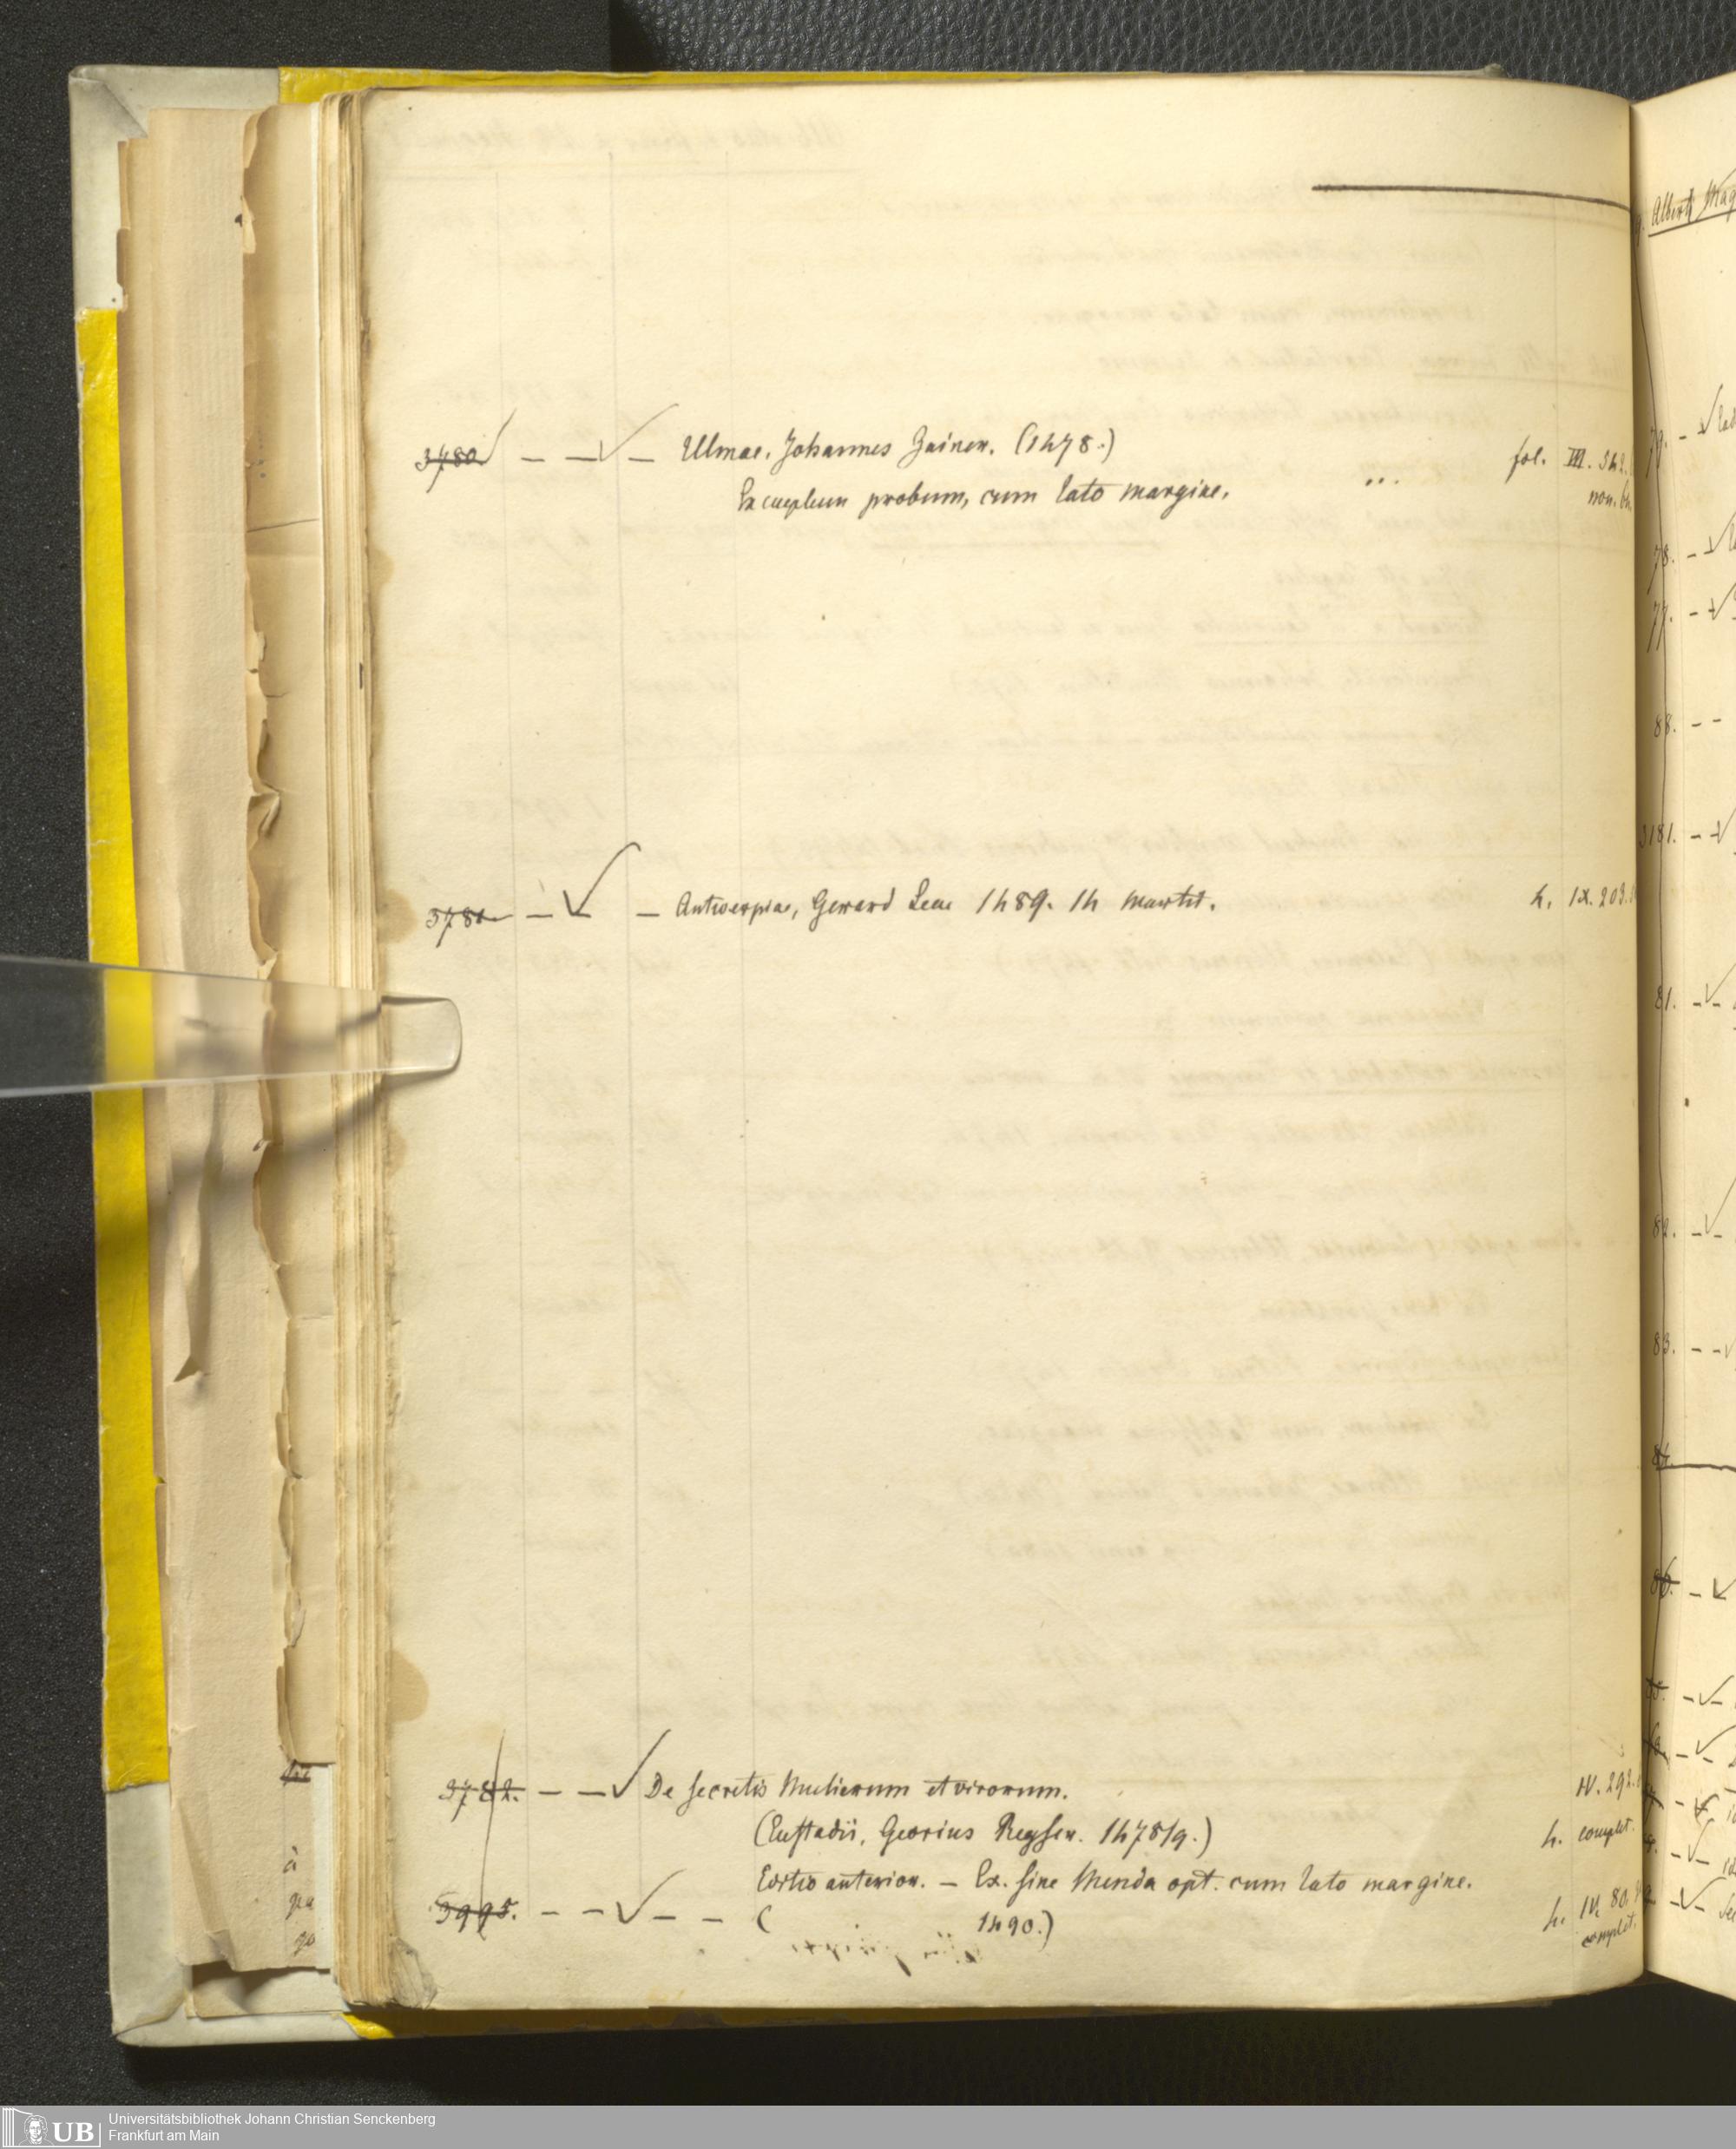 3780. – – – Ulmae, Johannes Zainer. (1478.) fol. III. 542.
Exemplum probum, cum lato margine. ... non.
3781. – – – Antwerpiae, Gerard Leeu 1489. 14 Martii. 4. IX. 203.
3782. – – De secretis Mulierum et virorum. IV. 292.
(Eustadii, Georius Reyser. 1478/9.) 4. complet.
Editio anterior. – Ex. sine Menda opt. cum lato margine.
3995. – – – – ( 1490.) 4. IV. 80.
complet.
Alberti Mag
79.
78.
77.
88. – –
3181.
81.
82.
83.
84.
86.
UB Universitätsbibliothek Johann Christian Senckenberg
Frankfurt am Main